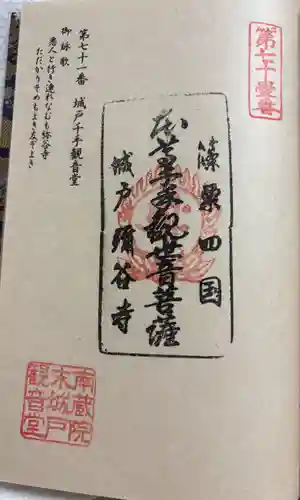 第七十一番
篠栗四国
千手観世音菩薩
城戸弥谷寺
第七十一番　城戸千手観音堂
御詠歌
悪人と行き連れなむも弥谷寺
ただかりそめもよき友ぞよき
南蔵院
木城戸
観音堂